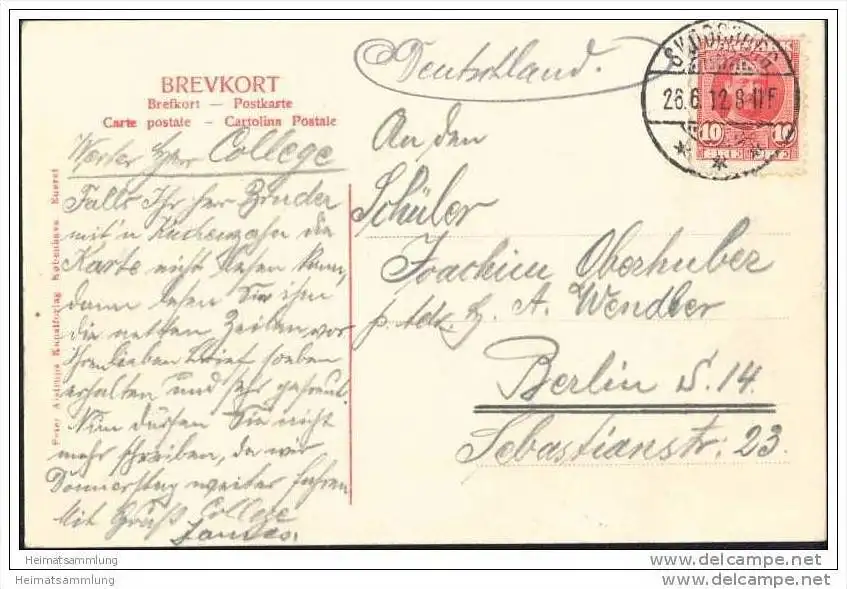 BREVKORT
Brefkort — Postkarte
Carte postale — Cartolina Postale
Deutschland.
SVENDBORG
26.6.12.8-11F
10 10
Werter Herr College
Falls Ihr Herr Bruder
mit'n Kuchenzahn die
Karte nicht lesen kann,
dann lesen Sie ihm
die netten Zeilen vor
Ihren lieben Brief soeben
erhalten und sehr gefreut.
Nun dürfen Sie nicht
mehr schreiben, da wir
Donnerstag weiter fahren
Mit Gruß College
An den
Schüler
Joachim Oberhuber
p. Adr. H. A. Wendler
Berlin S. 14.
Sebastianstr. 23.
Peter Alstrups Kunstforlag København Eneret
Heimatsammlung
Heimatsammlung
www.delcampe.net
www.delcampe.net